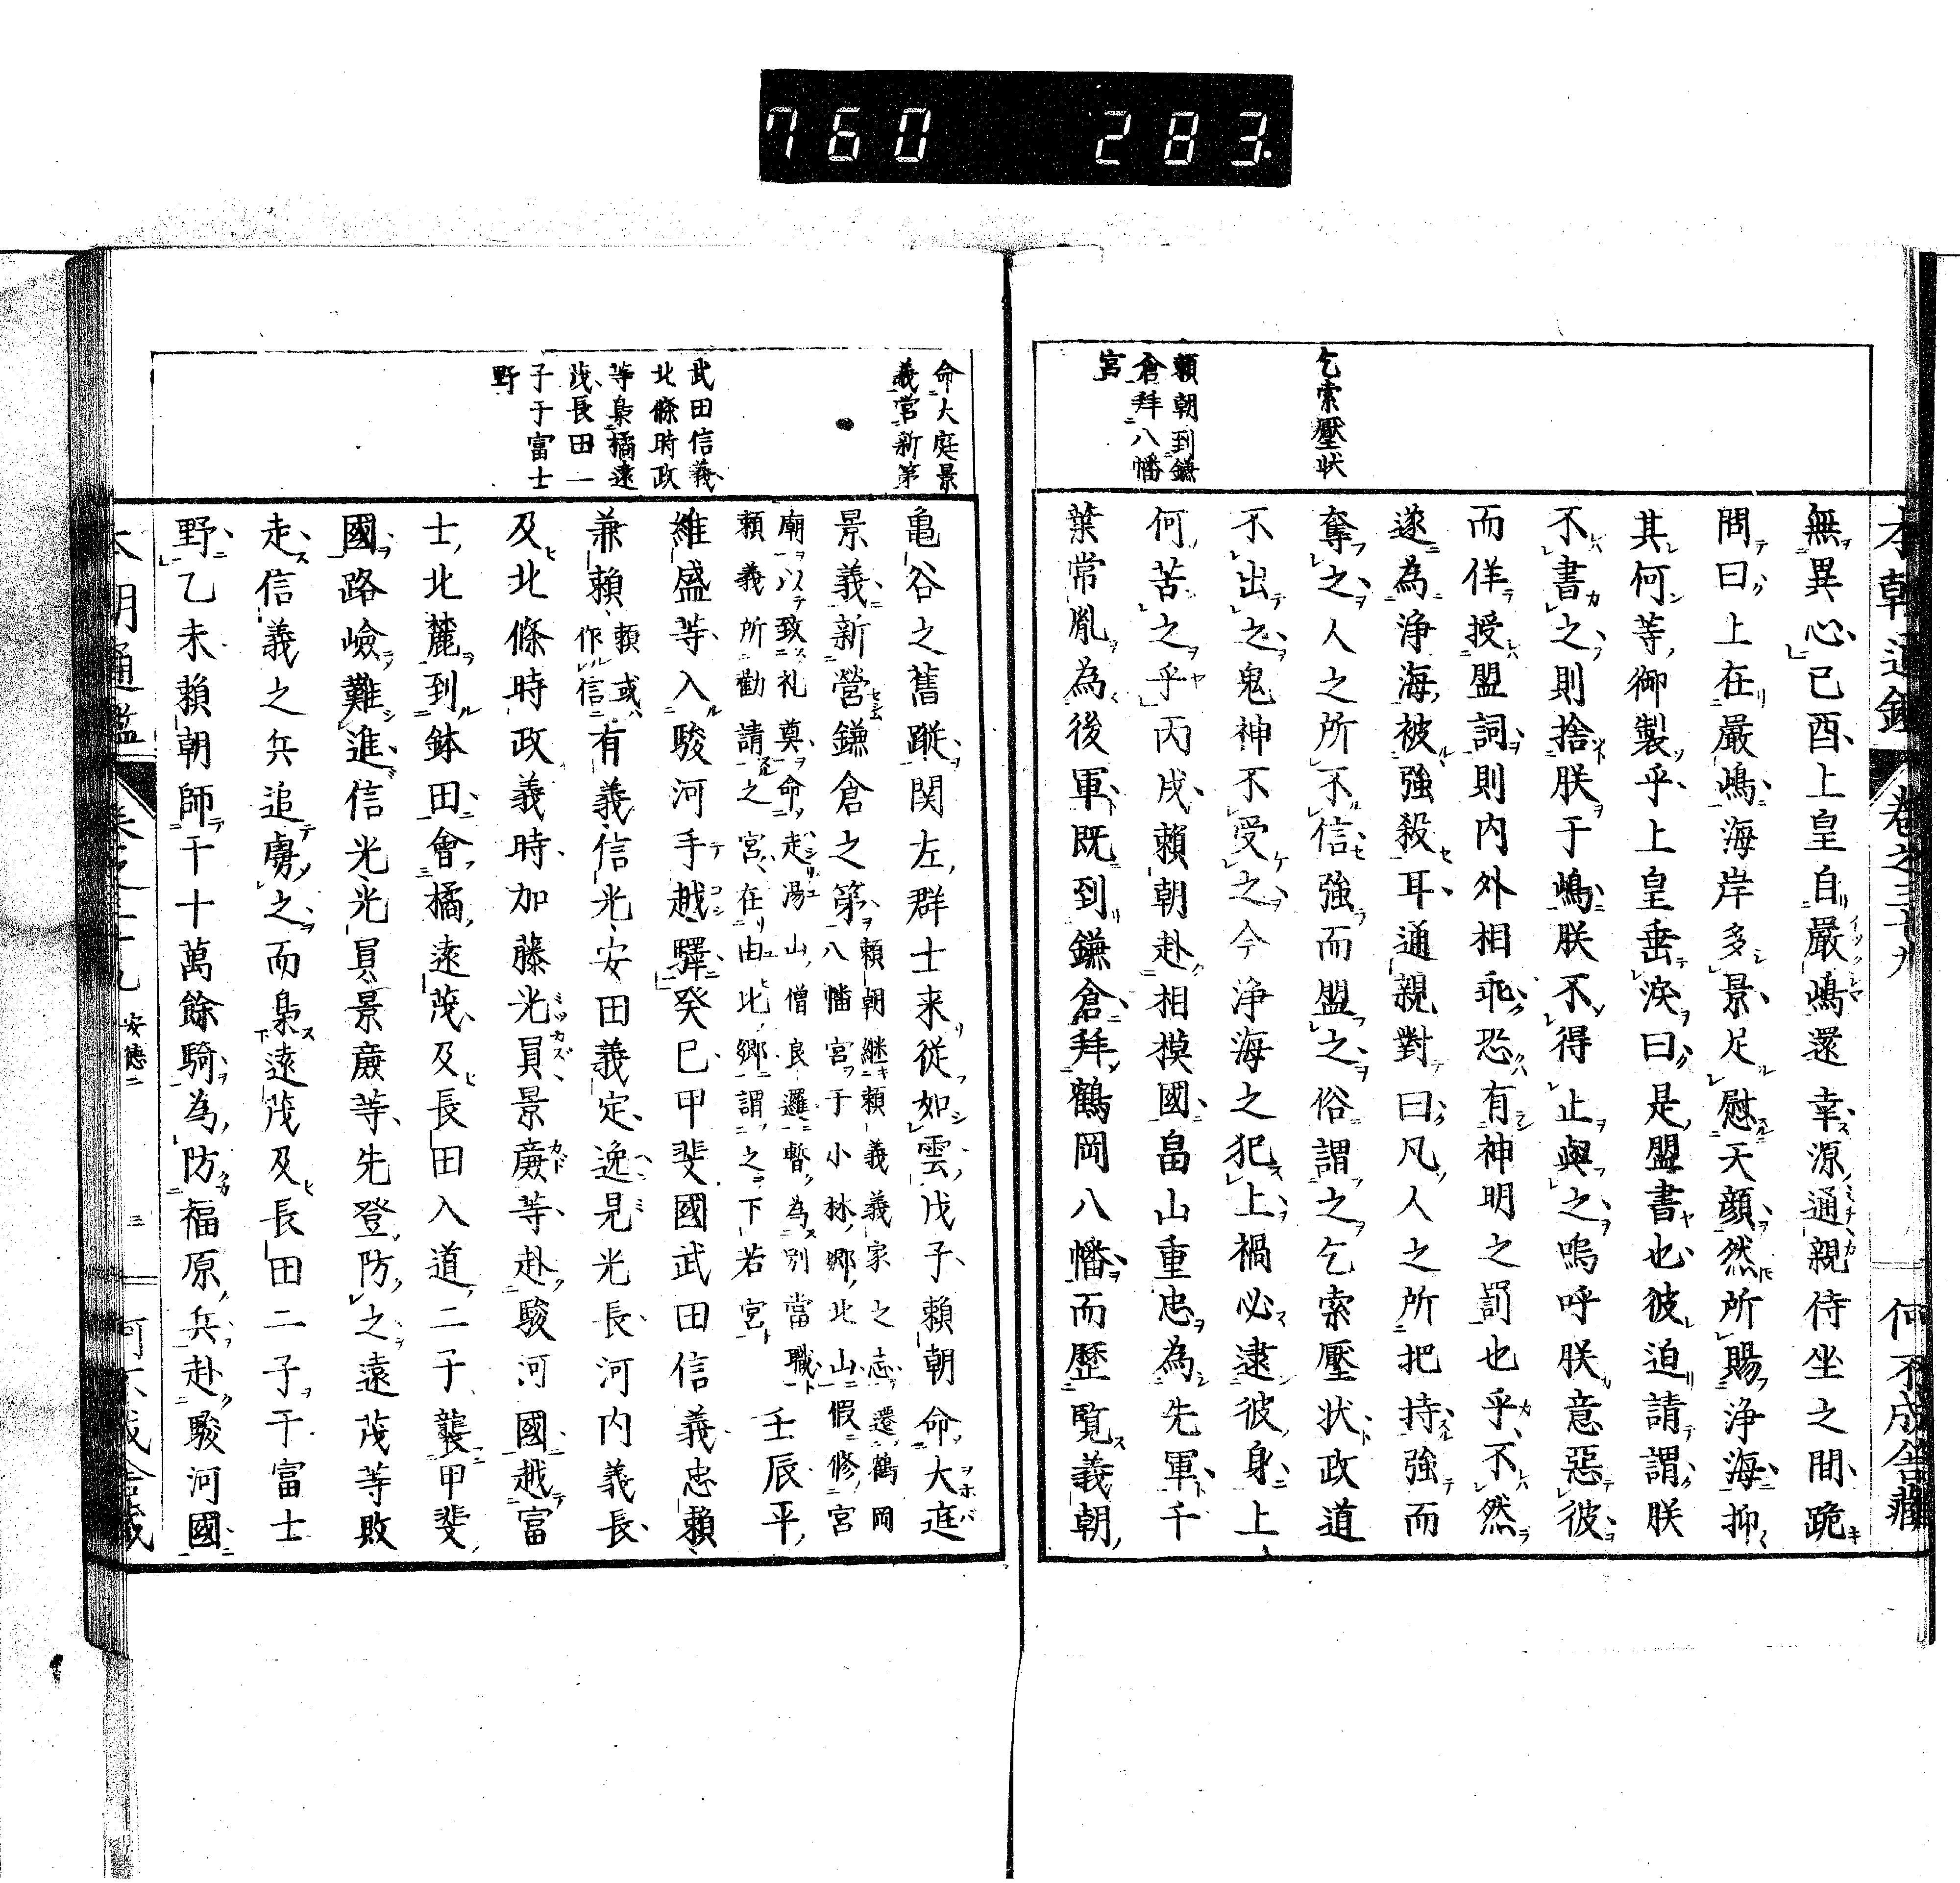 760 283.
本朝通鑑 卷之三十九 何不成舎藏
乞索壓状
賴朝到鎌
倉拜八幡
宮
無異心已酉上皇自嚴嶋還幸源通親侍坐之間跪
問曰上在嚴嶋海岸多景足慰天顔然所賜浄海抑
其何等御製乎上皇垂涙曰是盟書也彼迫請謂朕
不書之則捨朕于嶋朕不得止與之嗚呼朕意惡彼
而佯授盟詞則内外相乖恐有神明之罰也乎不然
遂為浄海被強殺耳通親對曰凡人之所把持強而
奪之人之所不信強而盟之俗謂之乞索壓状政道
不出之鬼神不受之今浄海之犯上禍必逮彼身上
何苦之乎丙戌賴朝赴相摸國畠山重忠為先軍千
葉常胤為後軍既到鎌倉拜鶴岡八幡而歴覧義朝
命大庭景
義営新第
武田信義
北條時政
等梟橘遠
茂長田一
子于富士
野
亀谷之舊蹤関左群士来從如雲戊子賴朝命大庭
景義新營鎌倉之第賴朝継賴義義家之志遷鶴岡
八幡宮于小林郷北山假修宮
廟以致礼奠命走湯山僧良暹暫為別當職
賴義所勸請之宮在由比郷謂之下若宮
壬辰平
維盛等入駿河手越驛癸巳甲斐國武田信義忠賴
兼賴賴或
作信有義信光安田義定逸見光長河内義長
及北條時政義時加藤光員景廉等赴駿河國越富
士北麓到鉢田會橘遠茂及長田入道二子襲甲斐
國路嶮難進信光光員景廉等先登防之遠茂等敗
走信義之兵追虜之而梟遠茂及長田二子于富士
野乙未賴朝師千十萬餘騎為防福原兵赴駿河國
本朝通鑑 卷之三十九 安德二 三 何不成舎藏